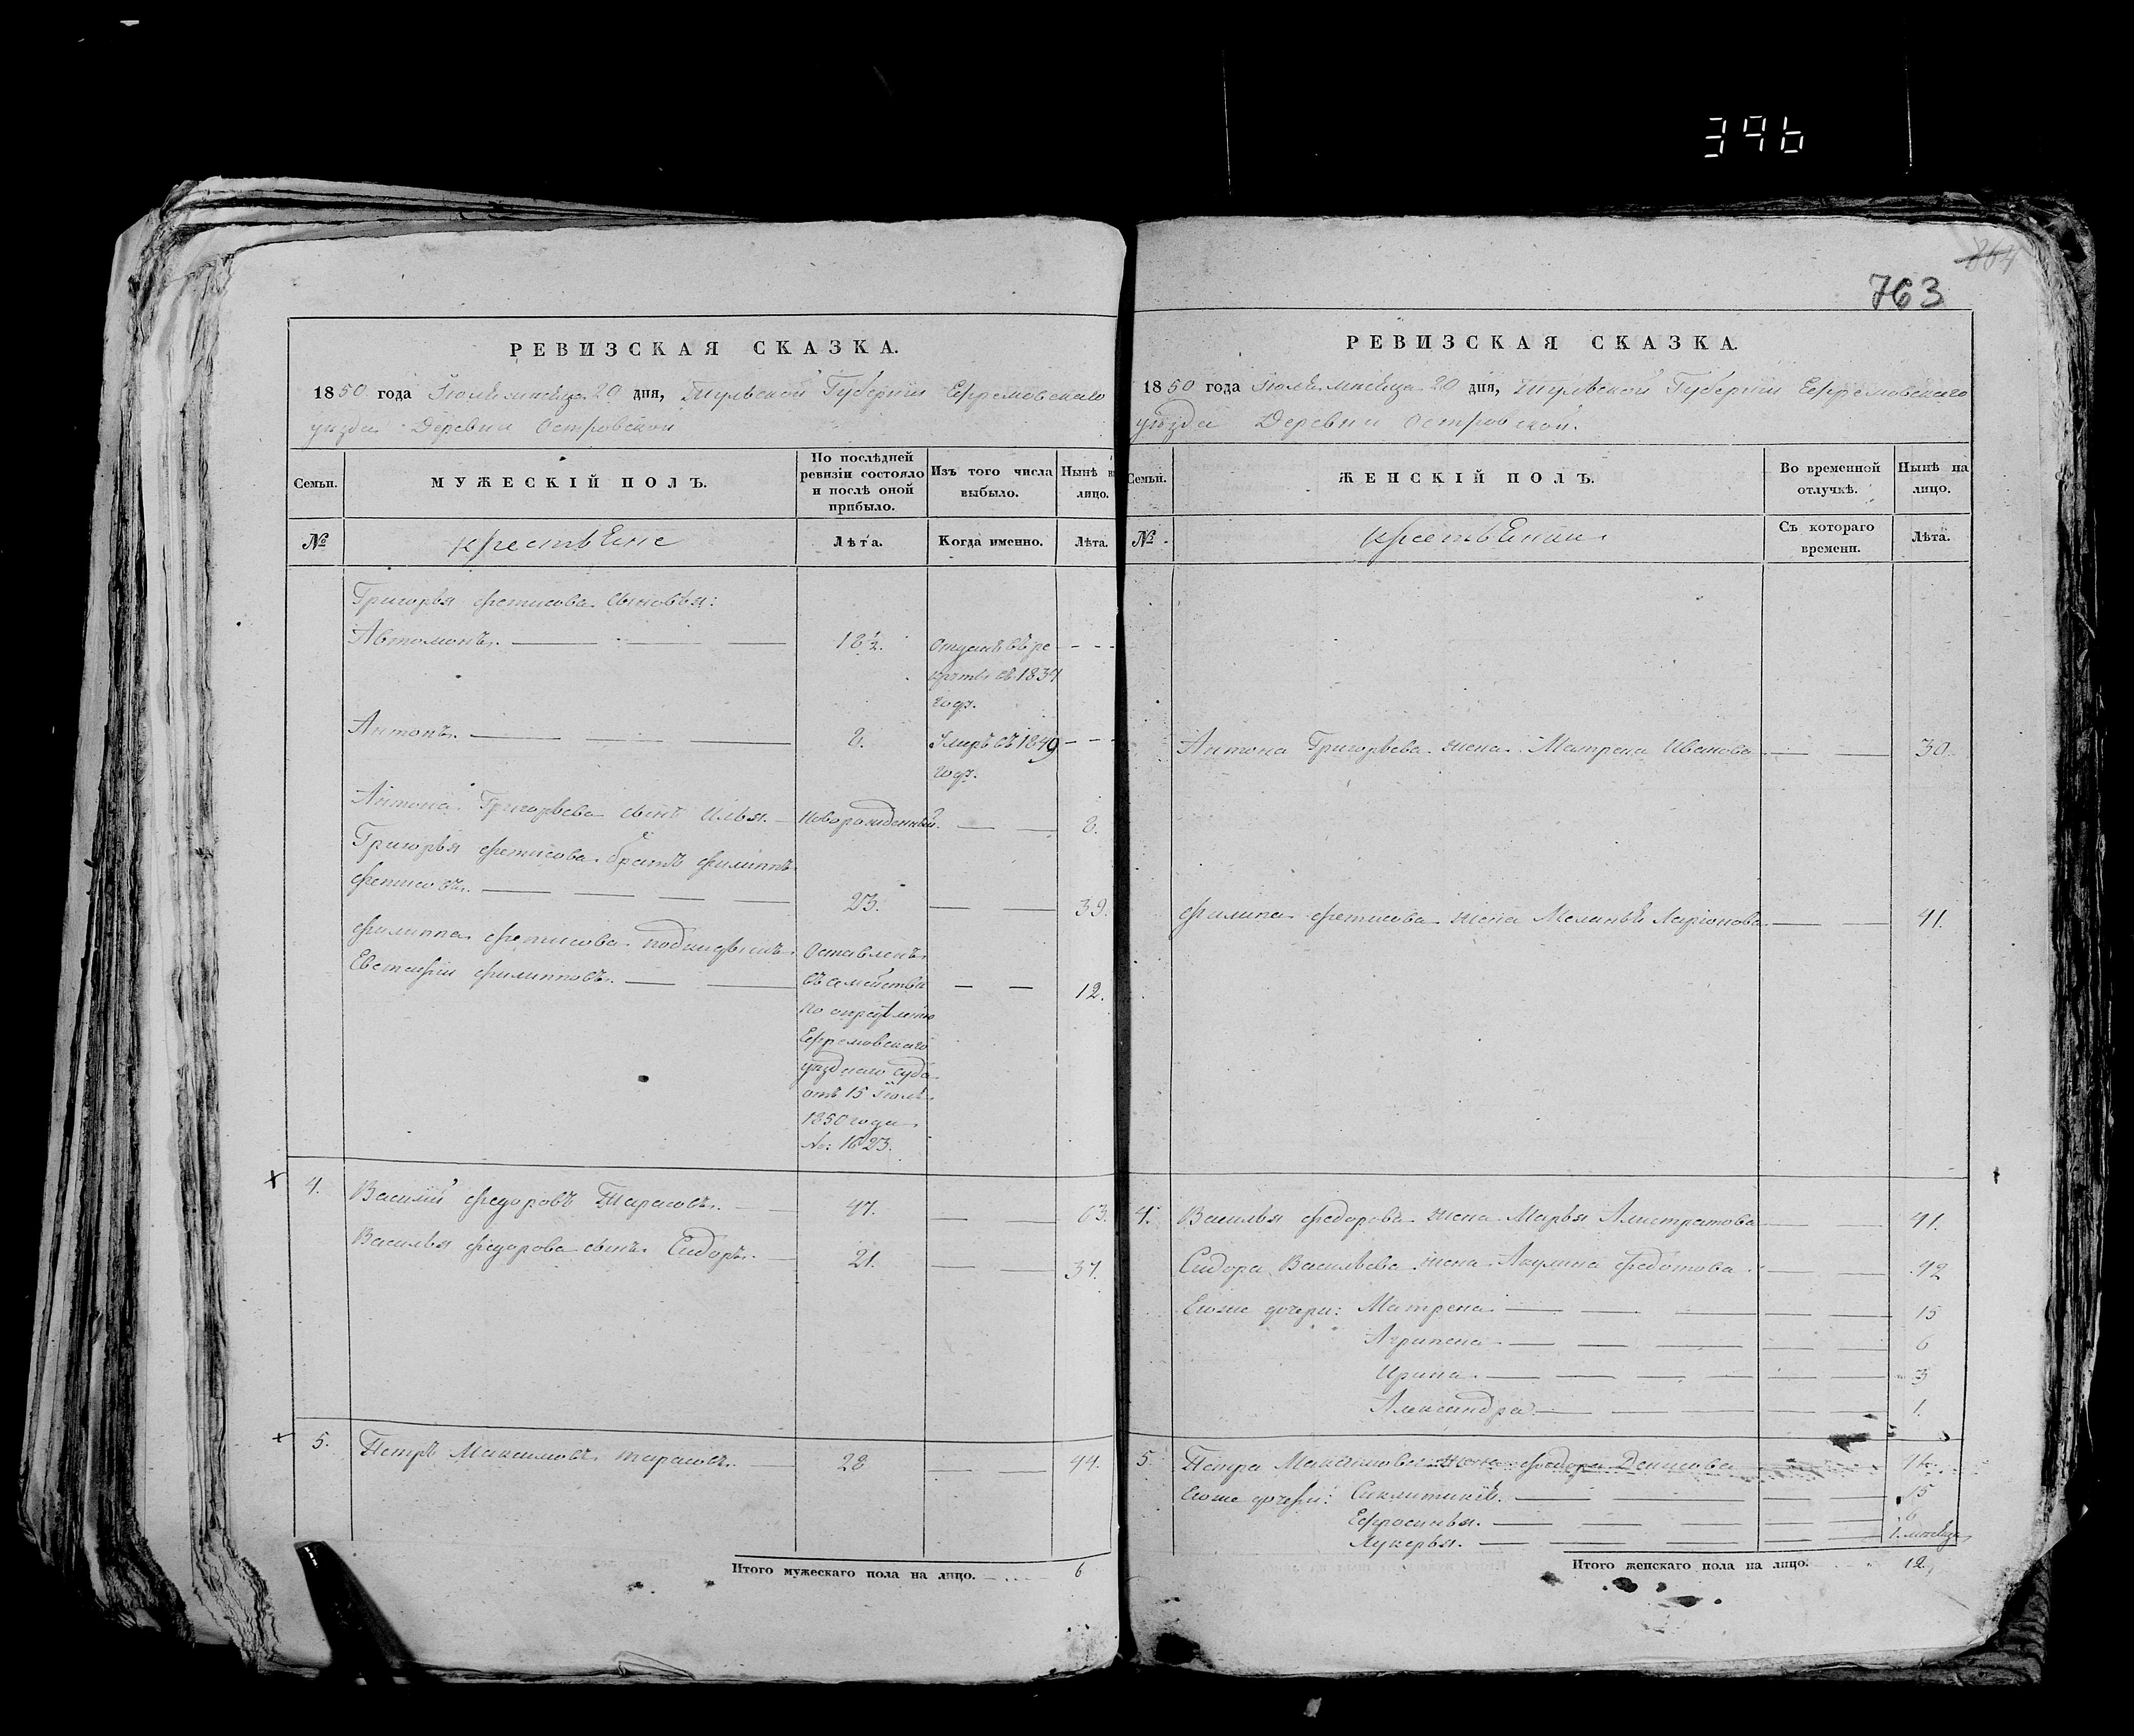 396
864
763
РЕВИЗСКАЯ СКАЗКА.
1850 года Іюля месяца 20 дня, Тульской Губерніи Ефремовскаго
уезда Деревни Островской
Семьи.
МУЖЕСКІЙ ПОЛЪ.
По послѣдней
ревизіи состояло
и послѣ оной
прибыло.
Изъ того числа
выбыло.
Нынѣ на
лицо.
№
крестьяне
Лѣта.
Когда именно.
Лѣта.
Григорья Фетисова сыновья:
Автомонъ. 18½. Отданъ въ ре
круты въ 1834
году.
Антонъ. 8. Умеръ въ 1849
году.
Антона Григорьева сынъ Илья. Новорожденный. 8.
Григорья Фетисова братъ Филиппъ
Фетисовъ. 23. 39.
Филиппа Фетисова подкидышъ Оставленъ
Евстафій Филипповъ. въ семействе 12.
по определенію
Ефремовскаго
уезднаго суда
отъ 15 Іюля
1850 года
№: 1623.
4. Василій Федоровъ Тарасовъ. 47. 63.
Василья Федорова сынъ Сидоръ. 21. 37.
5. Петръ Максимовъ Тарасовъ. 28 44.
Итого мужескаго пола на лицо. 6
РЕВИЗСКАЯ СКАЗКА.
1850 года Іюля месяца 20 дня, Тульской Губерніи Ефремовскаго
уезда Деревни Островской.
Семьи.
ЖЕНСКІЙ ПОЛЪ.
Во временной
отлучкѣ.
Нынѣ на
лицо.
№
Съ котораго
времени.
Лѣта.
Антона Григорьева жена Матрена Иванова 30.
Филипа Фетисова жена Меланья Ларіонова 41.
4. Василья Федорова жена Марья Алистратова 41.
Сидора Васильева жена Акулина Федотова 42
Егоже дочери: Матрена 15
Агрипена 6
Ирина 3
Александра 1.
5. Петра Максимова жена Федора Денисова
Егоже дочери: Секлитикія. 15
Ефросинья. 6
Лукерья. 1. месяца
Итого женскаго пола на лицо. 12.